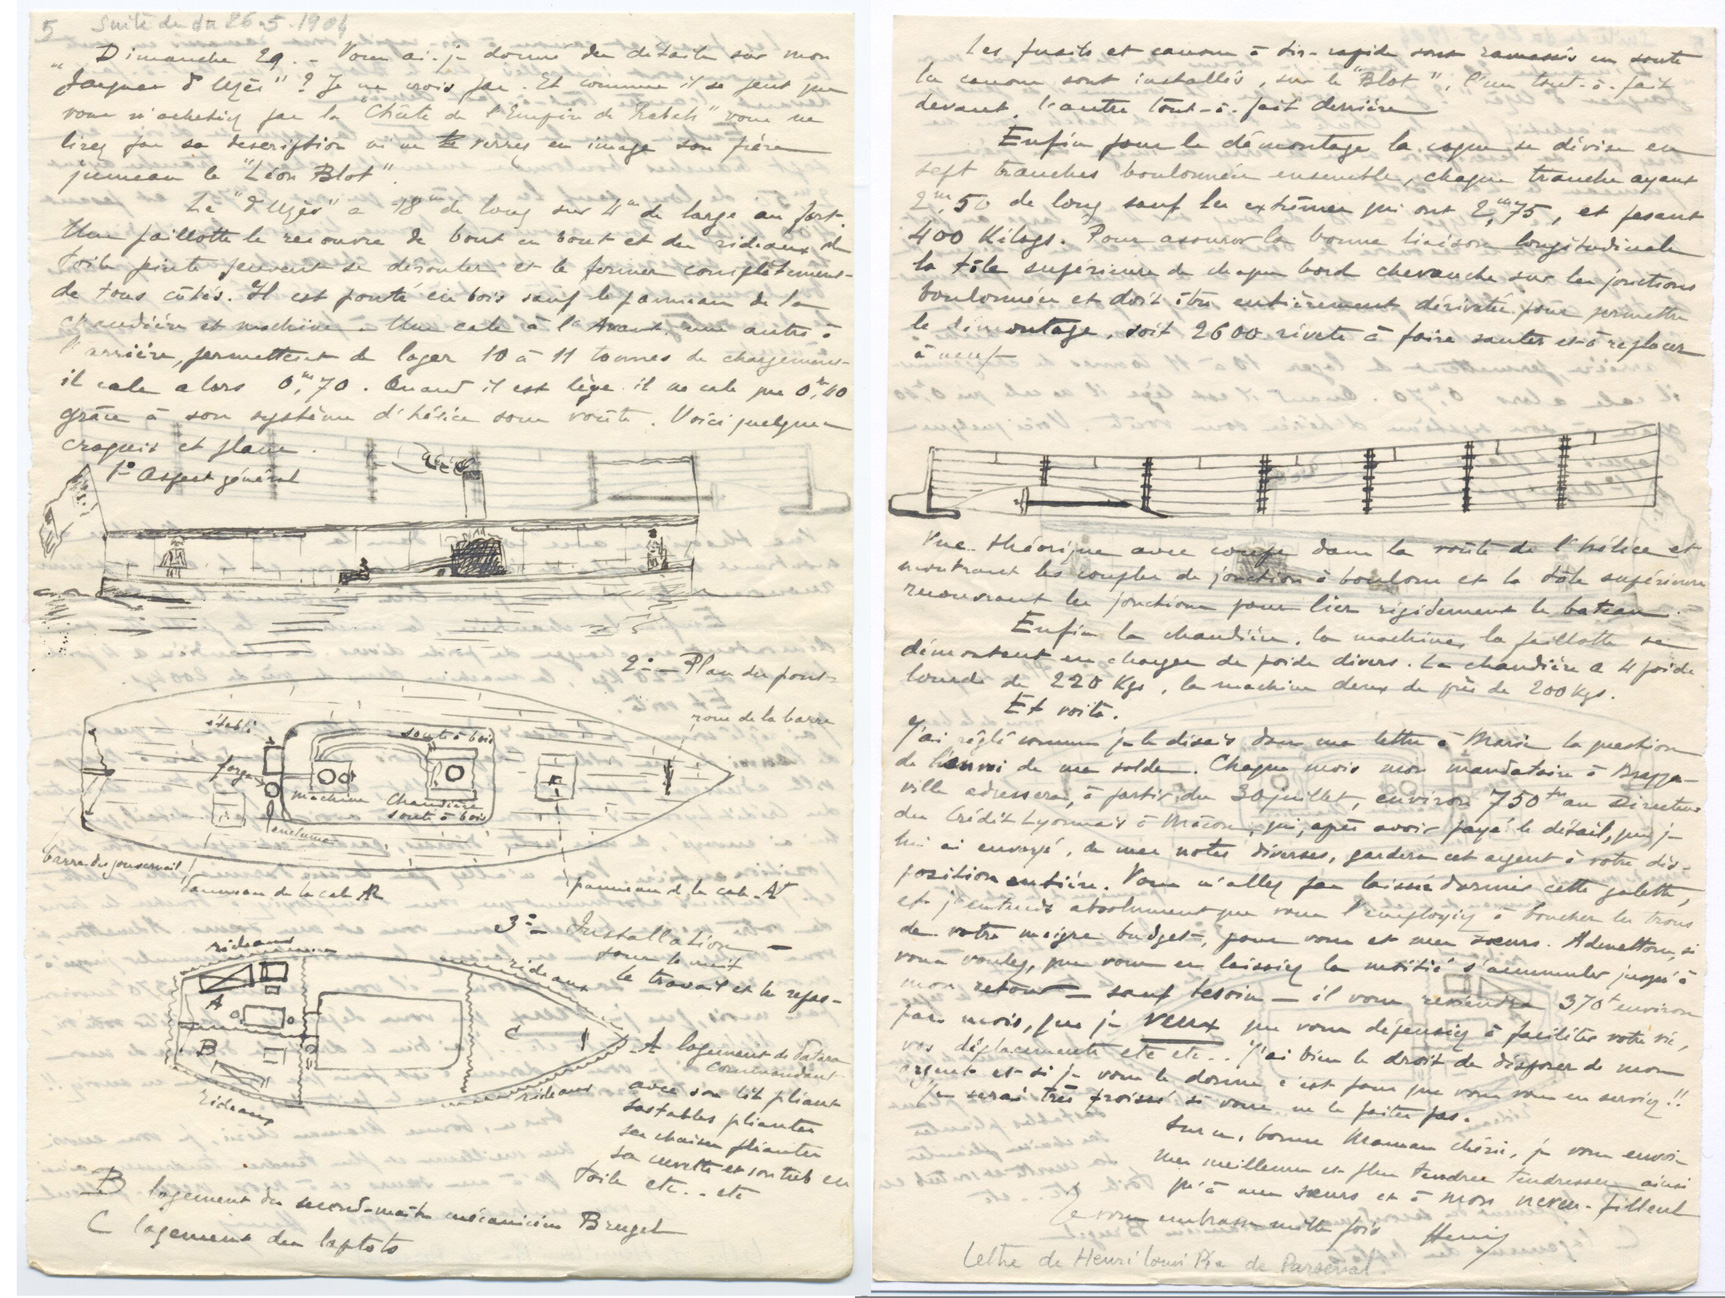 5 Suite du du 26-5-1904
Dimanche 29. - Vous ai-je donné des détails sur mon
"Jacques d'Uzès" ? Je ne crois pas. Et comme il se peut que
vous n'achetiez pas la "Chute de l'Empire de Rabah" vous ne
lirez pas sa description ni ne verrez en image son frère
jumeau le "Léon Blot".
Le "d'Uzès" a 18m de long sur 4m de large au fort.
Une paillotte le recouvre de bout en bout et des rideaux de
toile peinte peuvent se dérouler et le fermer complètement
de tous côtés. Il est ponté en bois sauf le panneau de la
chaudière et machine. Une cale à l'Avant, une autre à
l'arrière, permettent de loger 10 à 11 tonnes de chargement
il cale alors 0,m70. Quand il est lège il ne cale que 0,m40
grâce à son système d'hélice sous voûte. Voici quelques
croquis et plans.
1° Aspect général
2° - Plan du pont
roue de la barre
établi
soute à bois
forge
machine
Chaudière
soute à bois
enclume
barre du gouvernail
Panneau de la cale AR
panneau de la cale Av
3° - Installation -
pour la nuit
le travail et le repas -
rideaux
rideaux
A
B
C
rideaux
rideaux
A logement de
Commandant
avec son lit pliant
ses tables pliantes
ses chaises pliantes
sa cuvette et son tub en
toile etc.. etc
B logement du second-maître mécanicien Brugel
C logement des laptots
Les fusils et canons à tir-rapide sont ramassés en soute
les canons sont installés, sur le "Blot", l'un tout-à-fait
devant, l'autre tout-à-fait derrière
Enfin pour le démontage la coque se divise en
sept tranches boulonnées ensemble, chaque tranche ayant
2m,50 de long sauf les extrêmes qui ont 2,m75, et pesant
400 Kilogs. Pour assurer la bonne liaison longitudinale
la tôle supérieure de chaque bord chevauche sur les jonctions
boulonnées et doit être entièrement dérivetée pour permettre
le démontage, soit 2600 rivets à faire sauter et à replacer
à neuf
Vue théorique avec coupe dans la voûte de l'hélice et
montrant les couples de jonction à boulons et la tôle supérieure
recouvrant les jonctions pour lier rigidement le bateau.
Enfin la chaudière, la machine, la paillotte se
démontent en charges de poids divers. La chaudière a 4 poids
lourds de 220 Kgs, la machine deux de près de 200 kgs.
Et voilà.
J'ai réglé comme je le disais dans ma lettre à Marie la question
de l'envoi de ma solde. Chaque mois mon mandataire à Brazza-
ville adressera, à partir du 30 juillet, environ 750 frs au Directeur
du Crédit Lyonnais à Mâcon, qui, après avoir payé le détail, que je
lui ai envoyé, de mes notes diverses, gardera cet argent à votre dis-
position entière. Vous n'allez pas laisser dormir cette galette,
et j'entends absolument que vous l'employiez à boucher les trous
de votre maigre budget, pour vous et mes sœurs. Admettons, si
vous voulez, que vous en laissiez la moitié s'accumuler jusqu'à
mon retour - sauf besoin - il vous reviendra 370f environ
par mois, que je veux que vous dépensiez à faciliter votre vie,
vos déplacements etc etc.. J'ai bien le droit de disposer de mon
argent et si je vous le donne c'est pour que vous vous en serviez !!
Je serai très froissé si vous ne le faites pas.
Sur ce, bonne Maman chérie, je vous envoie
mes meilleures et plus tendres tendresses ainsi
qu'à mes sœurs et à mon neveu-filleul
Je vous embrasse mille fois Henri
Lettre de Henri Louis Pie de Parseval.